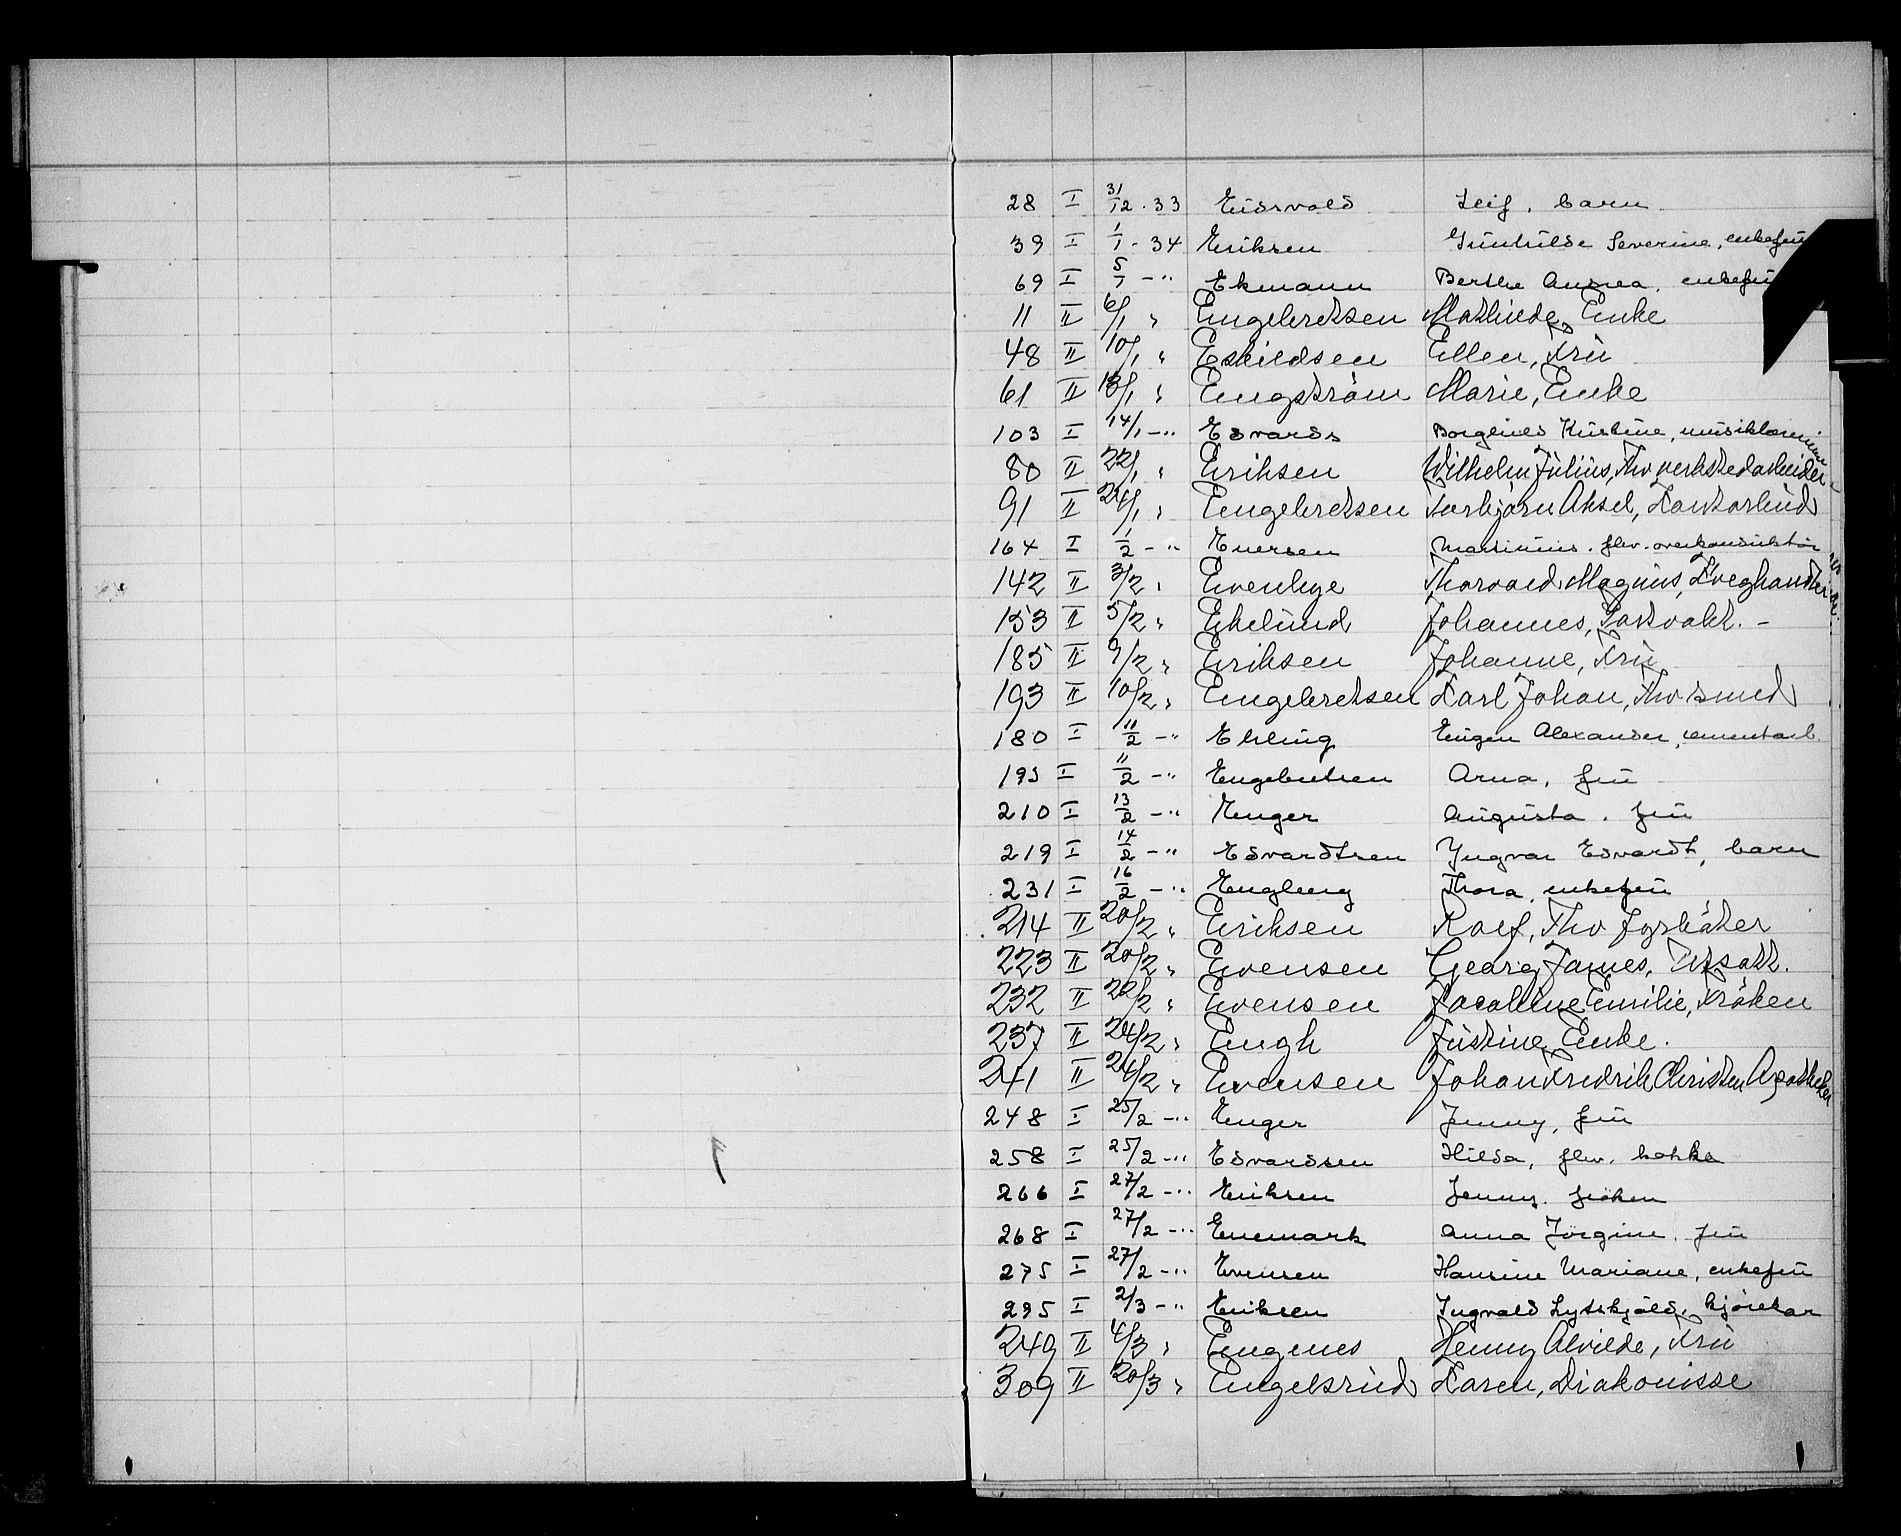 28 I 31/12 - 33 Eidsvold Leif, barn
39 I 1/1 - 34 Eriksen Gunhilde Severine, enkefru
69 I 5/1 - " Ekmann Berthe Andrea, enkefru
11 II 6/1 " Engebretsen Mathilde, Enke
48 II 10/1 " Eskildsen Ellen, Fru
61 II 13/1 " Engström Marie, Enke
103 I 14/1 - " Edvards Borghild Kristine, musiklærerinne
80 II 22/1 " Eriksen Wilhelm Julius, Fhv verkstedarbeider
91 II 24/1 " Engebretsen Torbjørn Aksel, Kontorbud
164 I 1/2 - " Evensen Martinius, fhv. overkonduktør
142 II 3/2 " Evenbye Thorvald Magnus, Kveghandler
153 II 5/2 " Ekelund Johannes, Portvakt. -
185 II 9/2 " Eriksen Johanne, Fru
193 II 10/2 " Engebretsen Karl Johan, Fhv smed
180 I 11/2 - " Ebbing Eugen Alexander, sementarb.
195 I 11/2 - " Engebretsen Arna, fru
210 I 13/2 - " Enger Augusta, fru
219 I 14/2 - " Edvardtsen Yngvar Edvardt, barn
231 I 16/2 - " Engberg Thora, enkefru
214 II 20/2 " Eriksen Rolf, Fhv fyrbøter
223 II 20/2 " Evensen Georg James, Defsatt.
232 II 22/2 " Evensen Jacobine Emilie, Frøken
237 II 24/2 " Engh Justine, Enke.
241 II 24/2 " Evensen Johan Fredrik Christen, Apotheker
248 I 25/2 - " Enger Jenny, fru
258 I 25/2 - " Edvardsen Hilda, fhv. kokke
266 I 27/2 - " Eriksen Jenny, frøken
268 I 27/2 - " Enemark Anna Jørgine, fru
275 I 27/2 - " Evensen Hansine Mariane, enkefru
295 I 2/3 - " Eriksen Ingvald Lytskjøld, kjørekar
249 II 4/3 " Engenes Jenny Alvilde, Fru
309 II 20/3 " Engelsrud Karen, Diakonisse